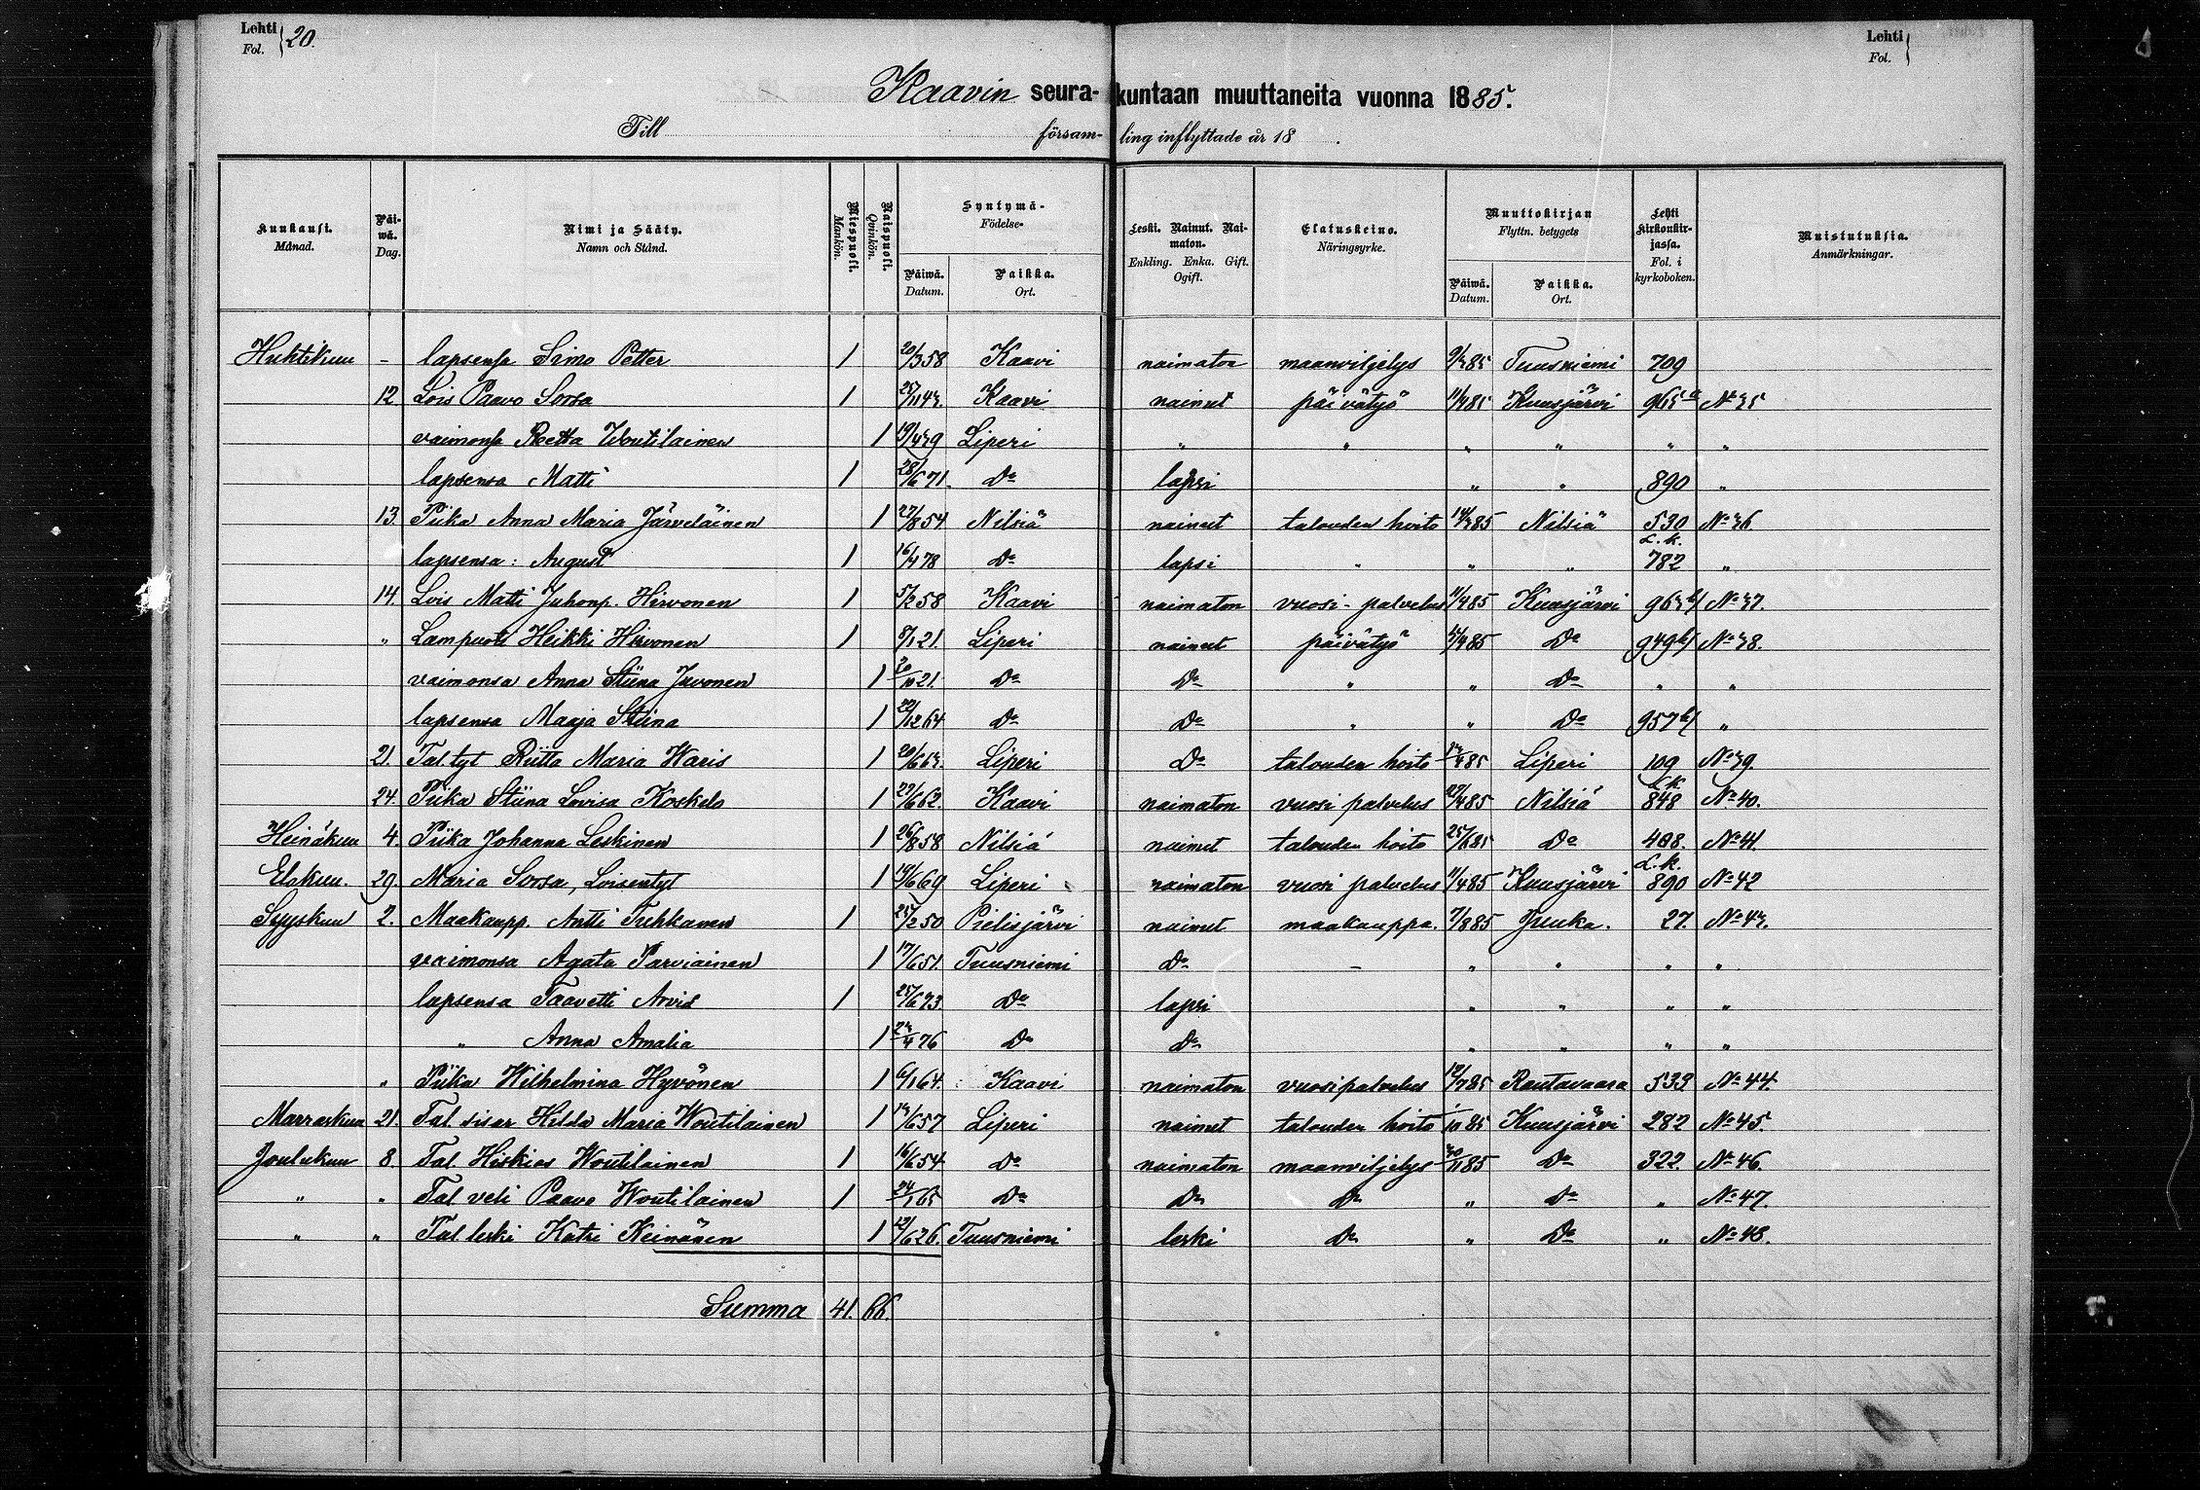 Lehti Fol. 20.
Lehti Fol.
Kaavin seurakuntaan muuttaneita vuonna 1885.
Till församling inflyttade år 18
Kuukausi. Månad. Päiwä. Dag. Nimi ja Sääty. Namn och Stånd. Miespuoli. Mankön. Naispuoli. Qvinkön. Syntymä- Födelse- Päiwä. Datum. Paikka. Ort. Leski. Nainut. Naimaton. Enkling. Enka. Gift. Ogift. Elatuskeino. Näringsyrke. Muuttokirjan Flyttn. betygets Päiwä. Datum. Paikka. Ort. Lehti kirkonkirjassa. Fol. i kyrkoboken. Muistutuksia. Anmärkningar.
Huhtikuu - lapsensa Simo Petter 1 20/3 58 Kaavi naimaton maanviljelys 9/4 85 Tuusniemi 709
12 Lois Paavo Sorsa 1 Kaavi nainut päivätyö 11/4 85 Kuusjärvi 965 a No 35
vaimonsa Reetta Woutilainen 1 19/4 39 Liperi " " " " " "
lapsensa Matti 1 28/6 71. Do lapsi " " 890 "
13 Piika Anna Maria Järveläinen 1 27/8 54 Nilsiä nainut talouden hoito 14/3 85 Nilsiä 530 No 36
lapsensa: August 1 16/4 78 Do lapsi " " " L.k. 782 "
14. Lois Matti Juhonp. Hirvonen 1 5/2 58 Kaavi naimaton vuosi-palvelus 11/4 85 Kuusjärvi 963 b/ No 37.
" Lampuoti Heikki Hirvonen 1 8/1 21. Liperi nainut päivätyö 4/4 85 Do 949 b/ No 38.
vaimonsa Anna Stiina Juvonen 1 20/10 21. Do Do " " Do " "
lapsensa Maaja Stiina 1 22/12 64 Do Do " " Do 957 b/ "
21. Tal. tyt Riitta Maria Waris 1 20/6 63. Liperi Do talouden hoito 85 Liperi 109 No 39.
24. Piika Stiina Lovisa Koskelo 1 23/6 62. Kaavi naimaton vuosi palvelus 27/4 85 Nilsiä L.k. 848 No 40.
Heinäkuu 4. Piika Johanna Leskinen 1 26/8 58 Nilsiä nainut talouden hoito 25/6 85 Do 408. No 41.
Elokuu. 29. Maria Sorsa, Loisentyt 1 19/6 69 Liperi naimaton vuosi palvelus 11/4 85 Kuusjärvi L.k. 890 No 42
Syyskuu 2. Maakaupp. Antti Tuhkanen 1 25/2 50 Pielisjärvi nainut maakauppa. 7/8 85 Juuka. 27. No 43.
vaimonsa Agata Parviainen 1 17/6 51. Tuusniemi Do - " " " "
lapsensa Taavetti Arvid 1 25/6 73. Do lapsi " " " "
" Anna Amalia 1 23/4 76 Do Do " " " "
" Piika Wilhelmina Hyvönen 1 6/1 64. Kaavi naimaton vuosipalvelus 12/7 85 Rautavaara 533 No 44
Marraskuu 21. Tal. sisar Hilda Maria Woutilainen 1 13/6 57 Liperi nainut talouden hoito 1/10 85 Kuusjärvi 282 No 45.
Joulukuu 8. Tal. Hiskias Woutilainen 1 16/6 54 Do naimaton maanviljelys 30/11 85 Do 322. No 46.
" " Tal. veli Paavo Woutilainen 1 24/1 65 Do Do Do " Do " No 47.
" " Tal. leski Katri Keinänen 1 12/6 26. Tuusniemi leski Do " Do " No 48.
Summa 41. 66.